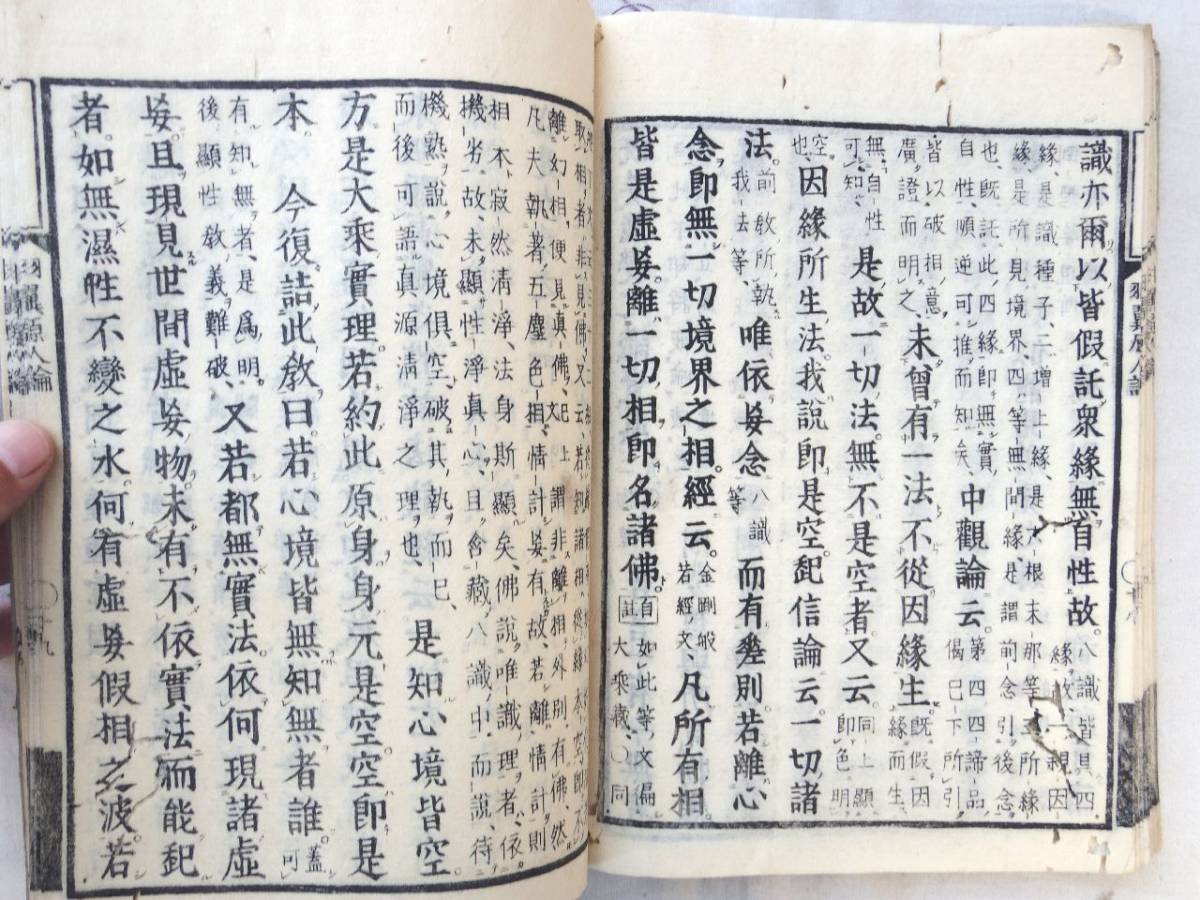 識亦爾以皆假託衆緣無自性故。八識皆具四
緣故、一親因
緣、是識種子、二增上緣、是六根末那等、三所緣
緣、是所見境界、四等無間緣、是謂前念引後念
也、既託此四緣即無實
自性、順逆可推而知矣、中觀論云。第四四諦品、
偈已下所引、
皆以破相意、
廣證而明之、未曾有一法不從因緣生。既假因
緣而生、
無自性
可知、是故一切法。無不是空者又云。同上顯
即色明
空
也、因緣所生法。我說即是空。起信論云。一切諸
法。前教所執
我法等、唯依妄念八識
等而有差別若離心
念即無一切境界之相。經云。金剛般
若經文、凡所有相。
皆是虛妄離一切相即名諸佛。首註如此等文徧
大乘藏、○同
相者、非見佛、又云、若知諸相從緣本空即不
離幻相、便見真佛、已上謂非離相外別有佛、然
凡夫執著五塵色相情計妄有故、若離情計則
相本寂然清淨、法身斯顯矣、佛說唯識理者、依
機劣故、未顯性淨真心、且含藏八識中而說、待
機熟說心境俱空、破其執而已、
而後可語真源清淨之理也、是知心境皆空。
方是大乘實理若約此原身身元是空空即是
本。今復詰此教曰若心境皆無知無者誰蓋
可
有知無者、是爲明。
後顯性教義難破、又若都無實法依何現諸虛
妄。且現見世間虛妄物。未有不依實法而能起
者。如無濕性不變之水。何有虛妄假相之波。若